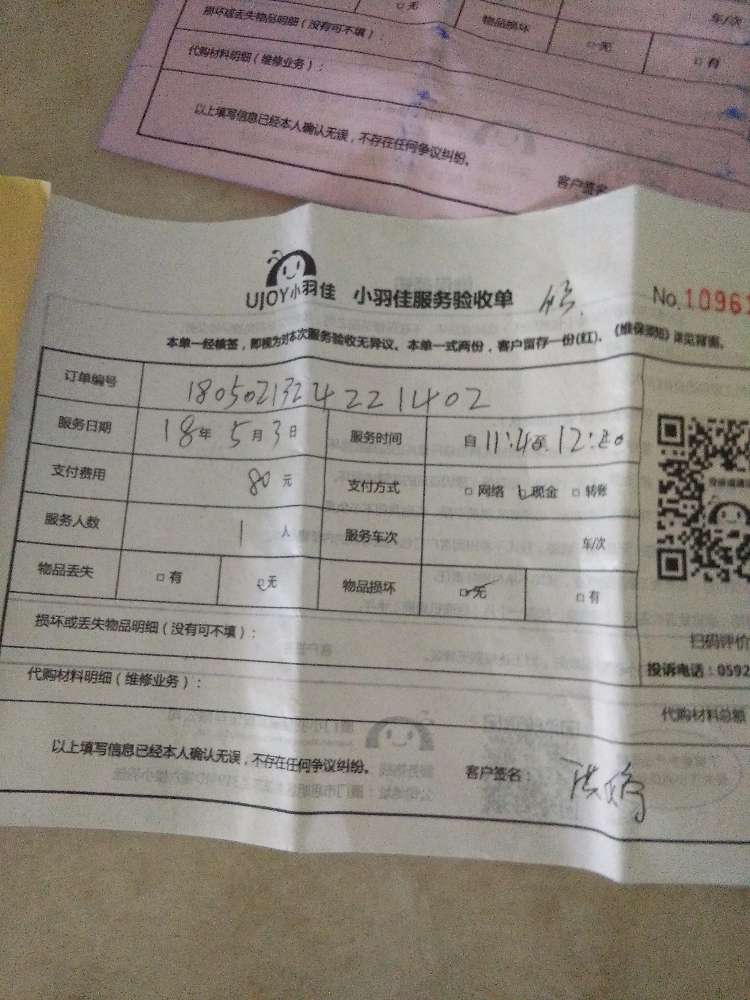 □无
物品损坏
车/次
损坏或丢失物品明细（没有可不填）：
□无
□有
代购材料明细（维修业务）：
以上填写信息已经本人确认无误，不存在任何争议纠纷。
客户签名
UJOY小羽佳 小羽佳服务验收单
No.1096
本单一经核签，即视为对本次服务验收无异议。本单一式两份，客户留存一份(红)。《维保须知》详见背面。
订单编号 1805021324221402
服务日期 18年5月3日 服务时间 自11:40至12:20
支付费用 80元 支付方式 □网络 □现金 □转账
服务人数 1人 服务车次 车/次
物品丢失 □有 □无 物品损坏 □无 □有
损坏或丢失物品明细（没有可不填）：
扫码评价
投诉电话：0592
代购材料明细（维修业务）：
代购材料总额
以上填写信息已经本人确认无误，不存在任何争议纠纷。
客户签名：